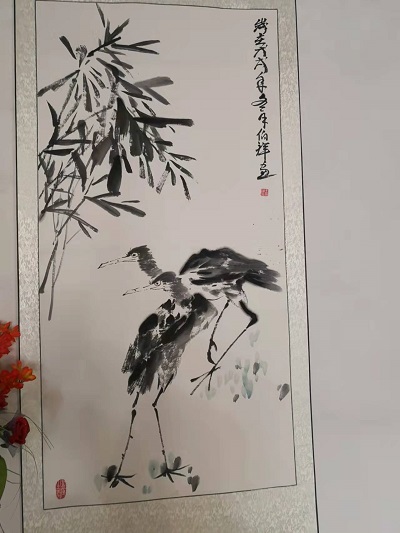 歲在戊戌年冬月伯祥画